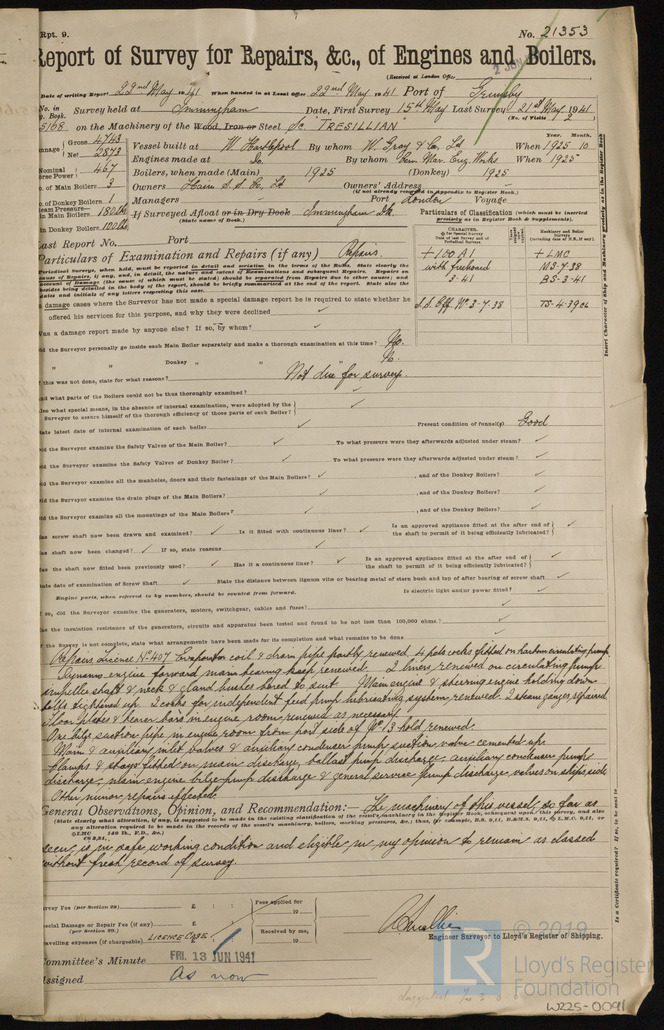 Rpt. 9.
No. 21353
Report of Survey for Repairs, &c., of Engines and Boilers.
(Received at London Office
Date of writing Report 22nd May 1941 When handed in at Local Office 22nd May 1941 Port of Grimsby
No. in Survey held at Immingham Date, First Survey 15th May Last Survey 21st May 1941
p. Book. (No. of Visits 2
5168 on the Machinery of the Wood, Iron or Steel Sc "TRESILLIAN"
Gross 4743
Net 2873
Vessel built at W. Hartlepool By whom W. Gray & Co. Ld When 1925 10
Year. Month.
Engines made at Do By whom Cen. Mar. Eng. Works When 1925
Nominal Horse Power 467
Boilers, when made (Main) 1925 (Donkey) 1925
No. of Main Boilers 3
Owners Hain S.S. Co. Ld Owners' Address
(if not already recorded in Appendix to Register Book.)
No. of Donkey Boilers 1
Managers Port London Voyage
Steam Pressure in Main Boilers 180 lbs
in Donkey Boilers 100 lbs
If Surveyed Afloat or in Dry Dock Immingham Dk.
(State name of Dock.)
Particulars of Classification (which must be inserted precisely as in Register Book & Supplements).
Last Report No. Port
Particulars of Examination and Repairs (if any) Repairs
+ 100 A1
with freeboard
3-41
+ LMC
MS-7-38
BS-3-41
TS-4-39
Periodical Surveys, when held, must be reported in detail
damage cases where the Surveyor has not made a special damage report he is required to state whether he
offered his services for this purpose, and why they were declined ✓
Was a damage report made by anyone else? If so, by whom? ✓
Did the Surveyor personally go inside each Main Boiler separately and make a thorough examination at this time? No.
" " Donkey " " No.
If this was not done, state for what reasons? Not due for survey.
And what parts of the Boilers could not be thus thoroughly examined?
Also what special means, in the absence of internal examination, were adopted by the
Surveyor to assure himself of the thorough efficiency of those parts of each Boiler? ✓
State latest date of internal examination of each boiler ✓ Present condition of funnel(s) Good
Did the Surveyor examine the Safety Valves of the Main Boiler? ✓ To what pressure were they afterwards adjusted under steam? ✓
Did the Surveyor examine the Safety Valves of Donkey Boiler? ✓ To what pressure were they afterwards adjusted under steam? ✓
Did the Surveyor examine all the manholes, doors and their fastenings of the Main Boilers? ✓, and of the Donkey Boilers? ✓
Did the Surveyor examine the drain plugs of the Main Boilers? ✓, and of the Donkey Boilers? ✓
Did the Surveyor examine all the mountings of the Main Boilers? ✓, and of the Donkey Boilers? ✓
Has screw shaft now been drawn and examined? ✓ Is it fitted with continuous liner? ✓ Is an approved appliance fitted at the after end of the shaft to permit of it being efficiently lubricated? ✓
Has shaft now been changed? ✓ If so, state reasons ✓
Has the shaft now fitted been previously used? ✓ Has it a continuous liner? ✓ Is an approved appliance fitted at the after end of the shaft to permit of it being efficiently lubricated? ✓
State date of examination of Screw Shaft ✓ State the distance between lignum vitæ or bearing metal of stern bush and top of after bearing of screw shaft ✓
Engine parts, when referred to by numbers, should be counted from forward. Is electric light and/or power fitted? ✓
If so, did the Surveyor examine the generators, motors, switchgear, cables and fuses? ✓
Has the insulation resistance of the generators, circuits and apparatus been tested and found to be not less than 100,000 ohms? ✓
If the Survey is not complete, state what arrangements have been made for its completion and what remains to be done
Repairs Licence No 407 Evaporator coil & drain pipe partly renewed. 4 pole cocks fitted on harbour circulating pump
Dynamo engine forward main bearing keep renewed. 2 liners renewed on circulating pump
impeller shaft & neck & gland bushes bored to suit. Main engine & steering engine holding down
bolts tightened up. 2 cocks for independent feed pump lubricating system renewed. 2 steam gauges repaired
Floor plates & bearer bars in engine room renewed as necessary.
One bilge suction pipe in engine room from port side of No 3 hold renewed.
Main & auxiliary inlet valves & auxiliary condenser pump suction valve cemented up.
Clamps & stays fitted on main discharge, ballast pump discharge, auxiliary condenser pump
discharge, main engine bilge pump discharge & general service pump discharge valves on ships side
Other minor repairs effected.
General Observations, Opinion, and Recommendation:— The machinery of this vessel, so far as
seen, is in safe working condition and eligible in my opinion to remain as classed
without fresh record of survey.
Survey Fee (per Section 29) £ : : Fees applied for 19
Special Damage or Repair Fee (if any) (per Section 29.) £ : :
Travelling expenses (if chargeable) LICENCE CASE Received by me, 19
Engineer Surveyor to Lloyd's Register of Shipping.
Committee's Minute FRI. 13 JUN 1941
Assigned As now
Insert Character of Ship and Machinery precisely as in the Register Book
Is a Certificate required?
© 2019
LR
Lloyd's Register
Foundation
W225-0091